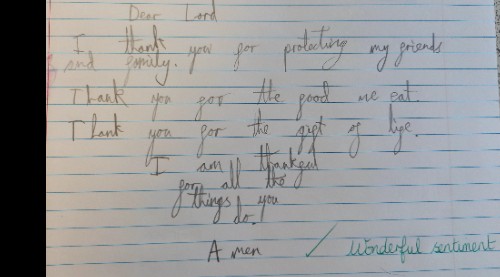 Dear Lord
I thank you for protecting my friends
and family.
Thank you gor the good we eat.
Thank you gor the gift of lige.
I am thankgul
gor all the
things you
do.
Amen
✓ Wonderful sentiment